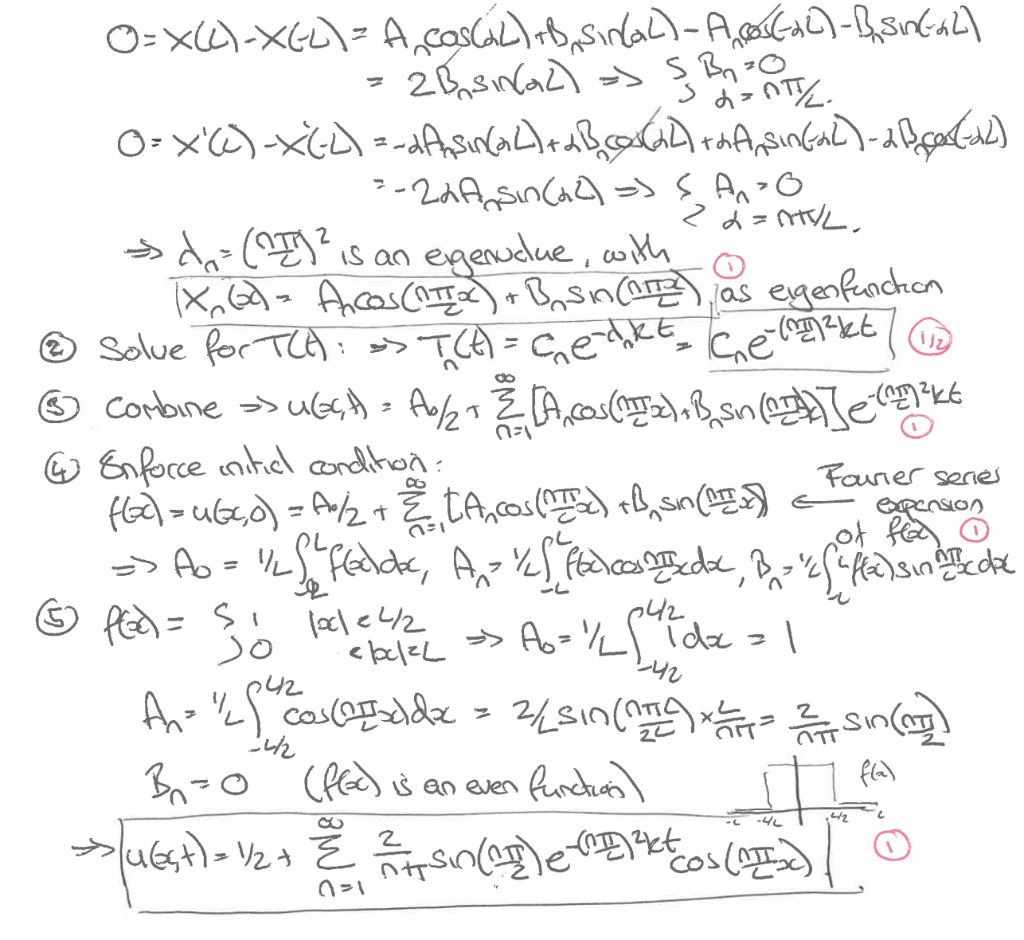 0 = X(L) - X(-L) = A_n cos(αL) + B_n sin(αL) - A_n cos(-αL) - B_n sin(-αL)
= 2B_n sin(αL) => { B_n = 0
α = nπ/L.
0 = X'(L) - X'(-L) = -αA_n sin(αL) + αB_n cos(αL) + αA_n sin(-αL) - αB_n cos(-αL)
= -2αA_n sin(αL) => { A_n = 0
α = nπ/L.
=> λ_n = (nπ/L)² is an eigenvalue, with
X_n(x) = A_n cos(nπx/L) + B_n sin(nπx/L) ① as eigenfunction
② Solve for T(t): => T_n(t) = C_n e^{-λ_n kt} = C_n e^{-(nπ/L)²kt} 1/2
③ Combine => u(x,t) = A_0/2 + Σ_{n=1}^∞ [A_n cos(nπ/L x) + B_n sin(nπ/L x)] e^{-(nπ/L)²kt} ①
④ Enforce initial condition:
f(x) = u(x,0) = A_0/2 + Σ_{n=1}^∞ [A_n cos(nπ/L x) + B_n sin(nπ/L x)] ← Fourier series
expansion
of f(x) ①
=> A_0 = 1/L ∫_{-L}^{L} f(x)dx, A_n = 1/L ∫_{-L}^{L} f(x) cos nπ/L x dx, B_n = 1/L ∫_{-L}^{L} f(x) sin nπ/L x dx
⑤ f(x) = { 1 |x| < L/2
0 < |x| < L => A_0 = 1/L ∫_{-L/2}^{L/2} 1 dx = 1
A_n = 1/L ∫_{-L/2}^{L/2} cos(nπ/L x) dx = 2/L sin(nπL/2L) × L/nπ = 2/nπ sin(nπ/2)
B_n = 0 (f(x) is an even function) f(x)
-L -L/2 L/2 L
=> u(x,t) = 1/2 + Σ_{n=1}^∞ 2/nπ sin(nπ/2) e^{-(nπ/L)²kt} cos(nπ/L x) ①